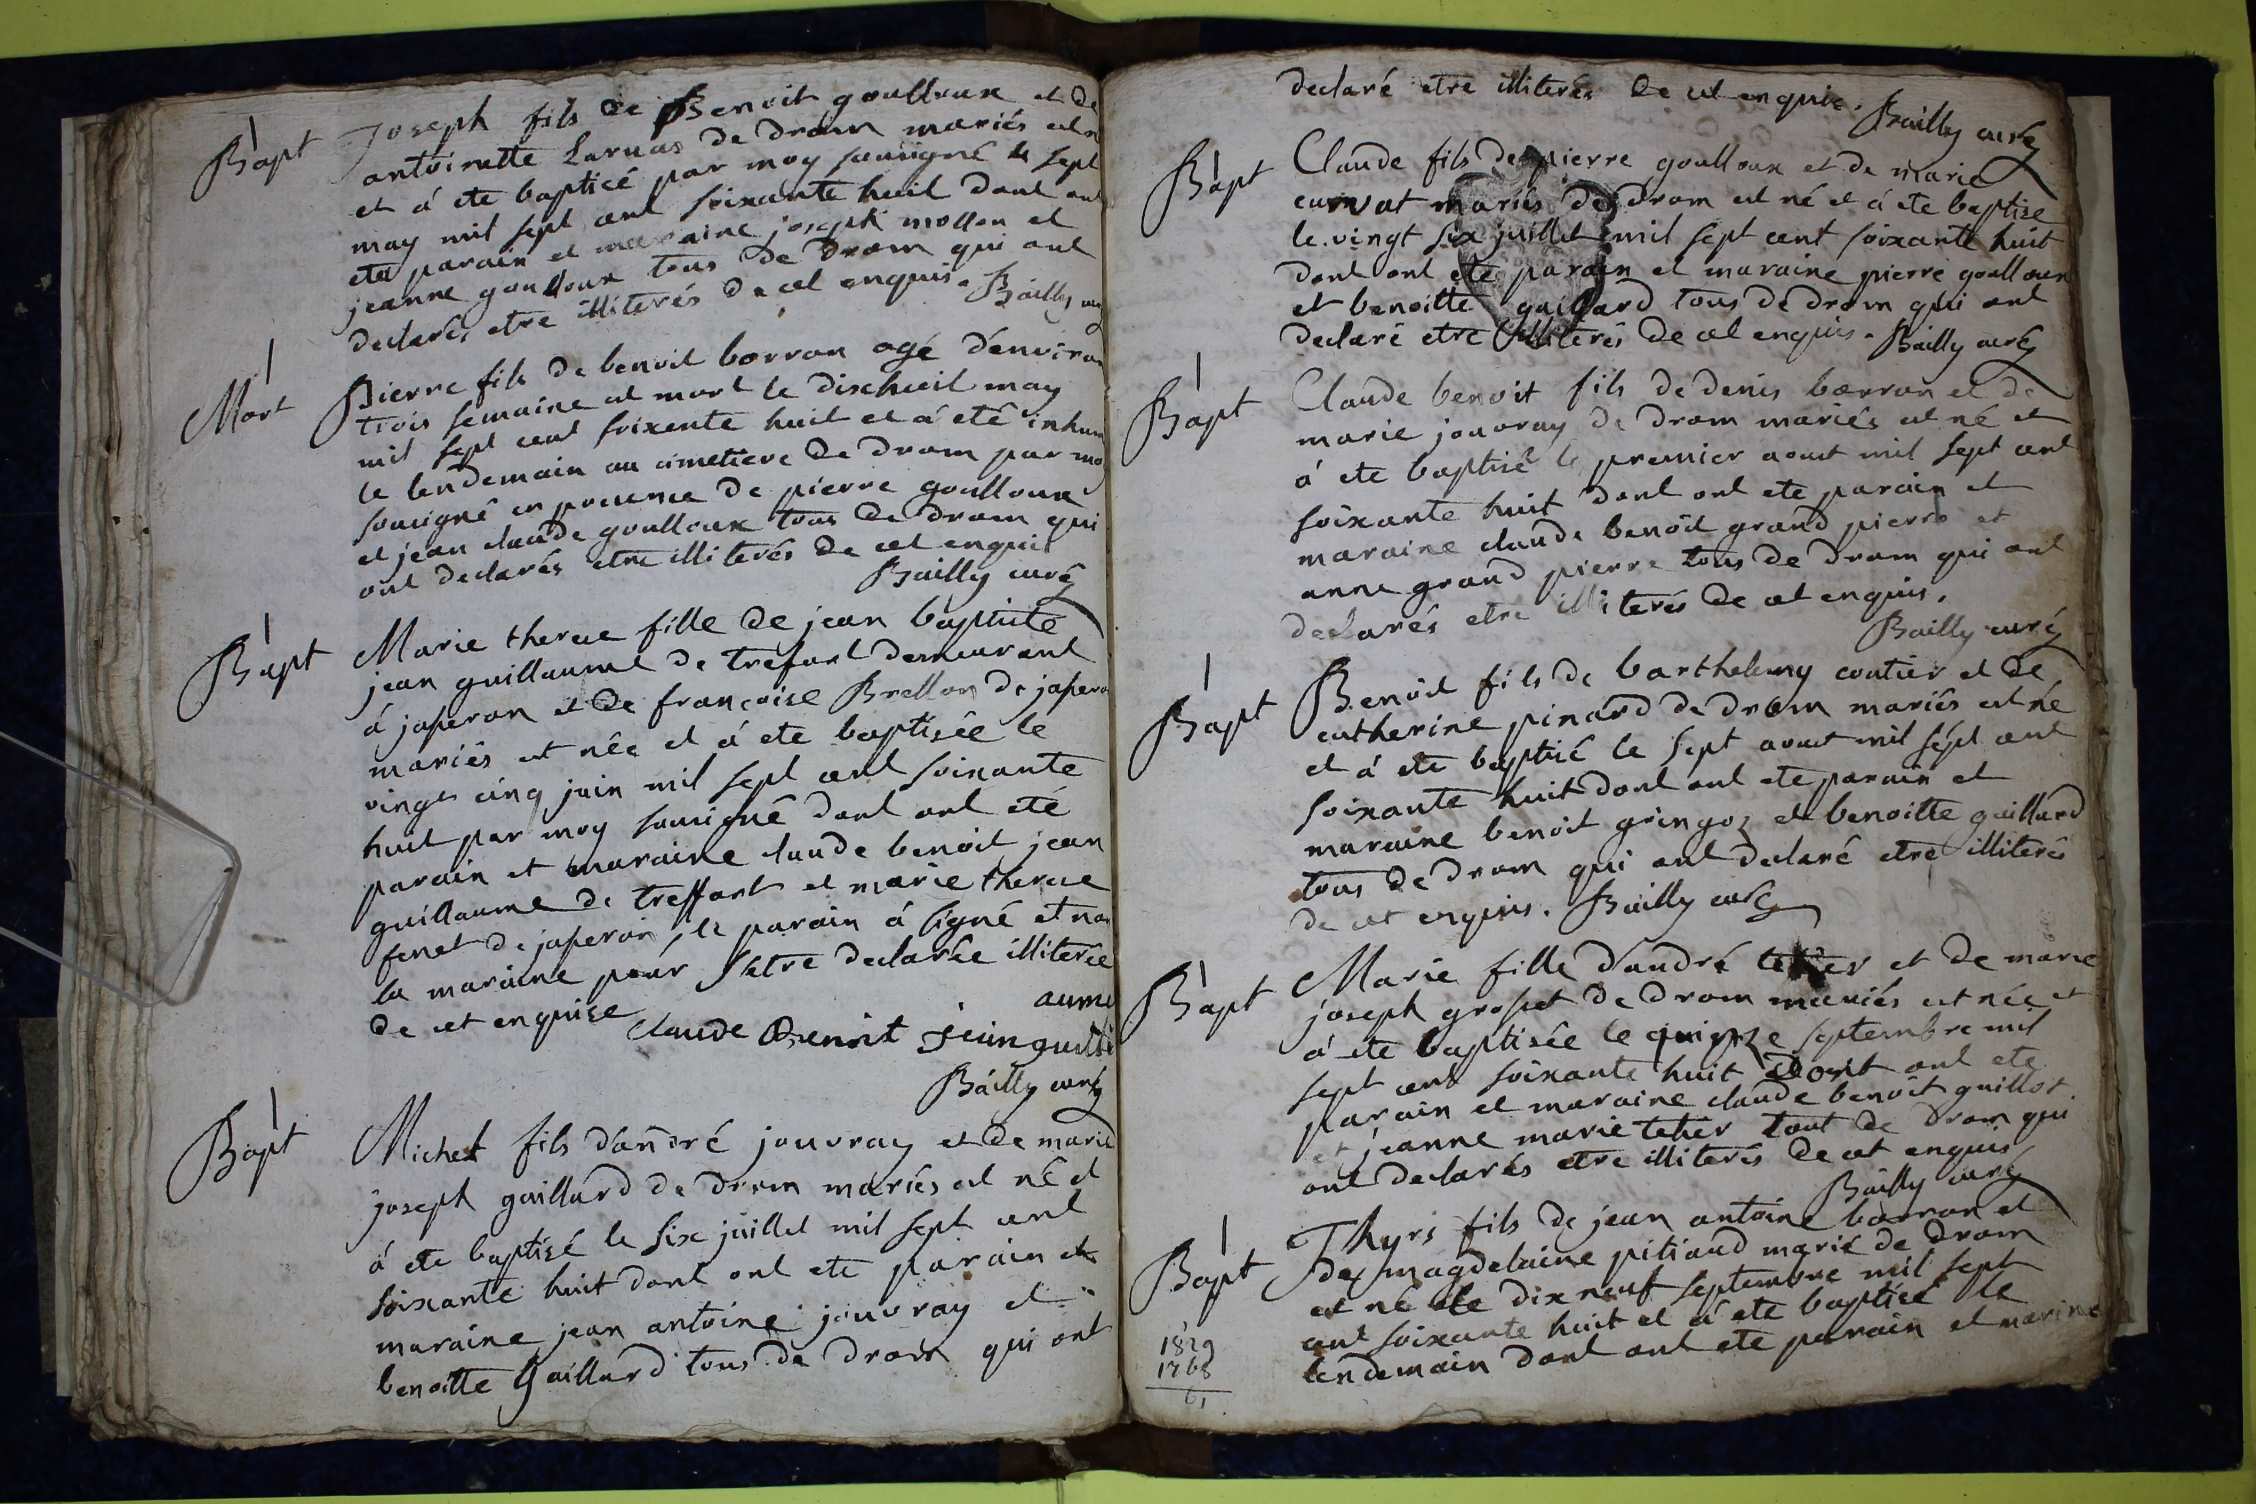 Bapt
Joseph fils de Benoit goulloux et de
antoinette Laruas de drom mariés est n
et á ete bapticé par moy sousigné le sept
may mil sept cent soixante huit dont ont
ete parain et maraine joseph mollon et
jeanne goulloux tous de drom qui ont
declarés etre illiterés de cet enquis. Bailly cu
Mort
Pierre fils de benoit borron agé d'environ
trois semaine est mort le dixhuit may
mil sept cent soixente huit et á été inhum
le lendemain au cimetiere de drom par mo
sousigné en presence de pierre goulloux
et jean claude goulloux tous de drom qui
ont declarés etre illiterés de cet enquis
Bailly curé
Bapt
Marie therese fille de jean baptiste
jean guillaume de trefort demeurant
á jaseron et de françoise Brellon de jasero
mariés est née et á ete baptisée le
vingt cinq juin mil sept cent soixante
huit par moy sousigné dont ont eté
parain et maraine claude benoit jean
guillaume de treffort et marie therese
feret de jaseron, le parain á signé et non
la maraine pour s'etre declarée illiterée
de cet enquise
aume
claude Benoit jean guilli
Bailly curé
Bapt
Michel fils d'andré jouvray et de marie
joseph gaillard de drom mariés est né et
á ete baptisé le six juillet mil sept cent
soixante huit dont ont ete parain et
maraine jean antoine jouvray et
benoitte Gaillard tous de drom qui ont
declaré etre illiterés de cet enquis.
Bailly curé
Bapt
Claude fils de pierre goulloux et de marie
curvat mariés de drom est né et á ete baptise
le vingt six juillet mil sept cent soixante huit
dont ont ete parain et maraine pierre goulloux
et benoitte gaillard tous de drom qui ont
declaré etre illiterés de cet enquis. Bailly curé
Bapt
Claude benoit fils de denis borron et de
marie jouvray de drom mariés est né et
á ete baptisé le premier aoust mil sept cent
soixante huit dont ont ete parain et
maraine claude benoit grand pierre et
anne grand pierre tous de drom qui ont
declarés etre illiterés de cet enquis.
Bailly curé
Bapt
Benoit fils de barthelemy coutier et de
catherine pinard de drom mariés est né
et á ete baptisé le sept aoust mil sept cent
soixante huit dont ont ete parain et
maraine benoit gringoz et benoitte gaillard
tous de drom qui ont declaré etre illiterés
de cet enquis. Bailly curé
Bapt
Marie fille d'andré tetier et de marie
joseph groset de drom mariés est née et
á ete baptisée le quinze septembre mil
sept cent soixante huit dont ont ete
parain et maraine claude benoit guillot
et jeanne marie tetier tout de drom qui
ont declarés etre illiterés de cet enquis
Bailly curé
Bapt
Thyrs fils de jean antoine borron et
de magdelaine pitiaud marié de drom
est né le dix neuf septembre mil sept
cent soixante huit et á ete bapticé le
lendemain dont ont ete parain et marine
1829
1768
61